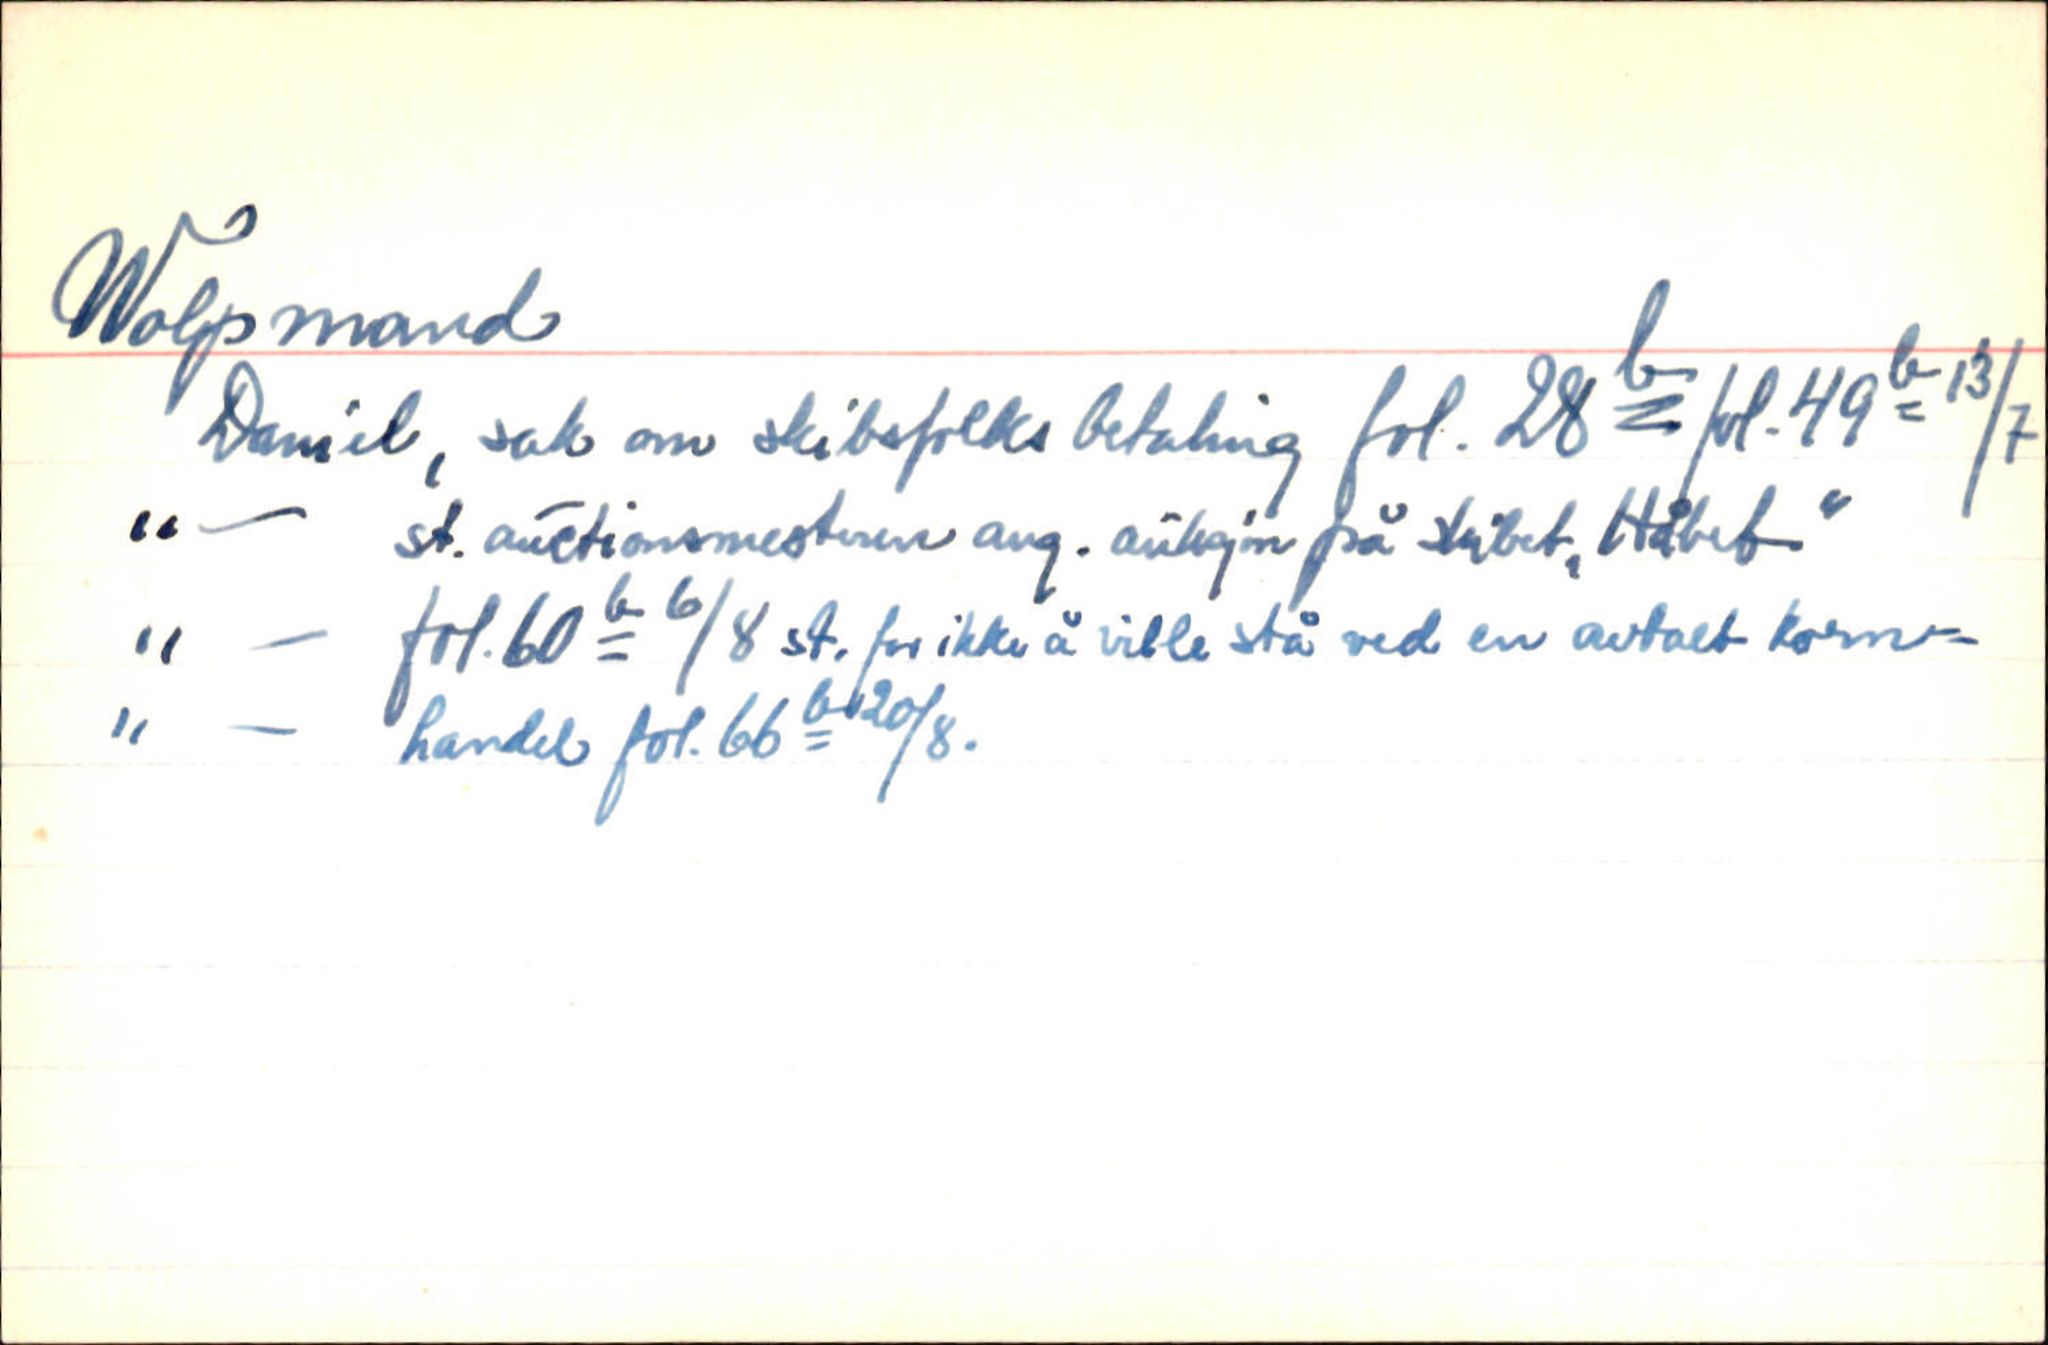 Wolpmand
Daniel, sak om skibsfolks betaling fol. 28 b fol. 49 b 13/7
" — st. auctionsmesteren ang. auksjon på skibet „Håbet"
" — fol. 60 b 6/8 st. for ikke å ville stå ved en avtalt korn-
" — handel fol. 66 b 20/8.